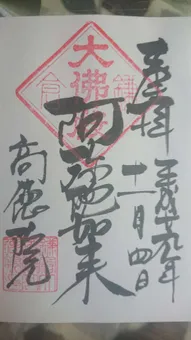 奉拝
平成廿九年
十一月四日
大佛殿
鎌倉
阿弥陀如来
高徳院